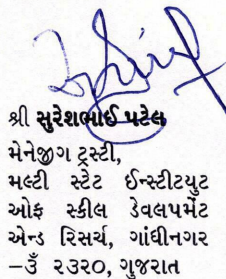 શ્રી સુરેશભાઈ પટેલ
મેનેજીગ ટ્રસ્ટી,
મલ્ટી સ્ટેટ ઈન્સ્ટીટયુટ
ઓફ સ્કીલ ડેવલપમેંટ
એન્ડ રિસર્ચ, ગાંધીનગર
–૩ૅં ૨૩૨૦, ગુજરાત